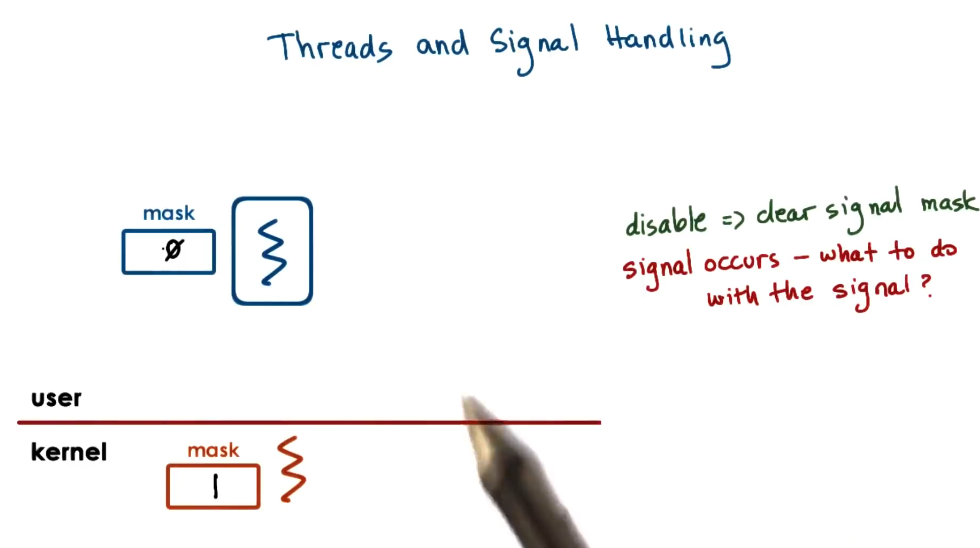 Threads and Signal Handling
mask
0
disable => clear signal mask
signal occurs – what to do
with the signal?
user
kernel
mask
1